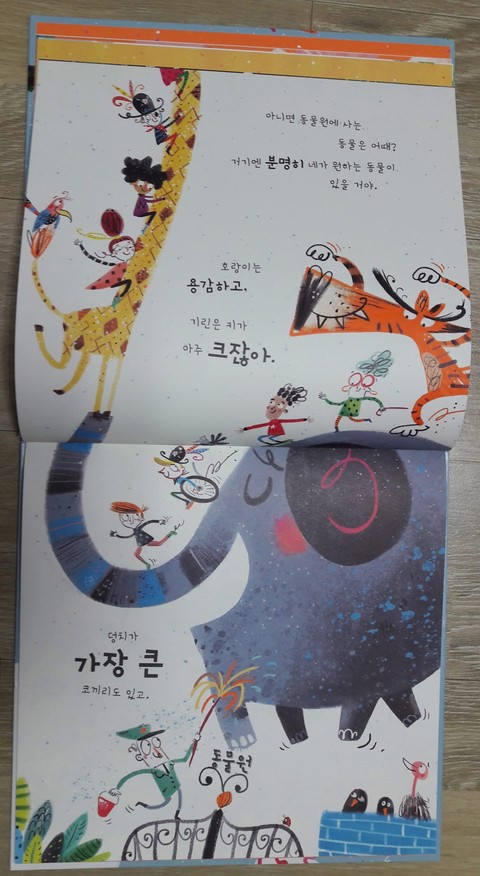 아니면 동물원에 사는
동물은 어때?
거기엔 분명히 네가 원하는 동물이
있을 거야.
호랑이는
용감하고,
기린은 키가
아주 크잖아.
덩치가
가장 큰
코끼리도 있고.
동물원